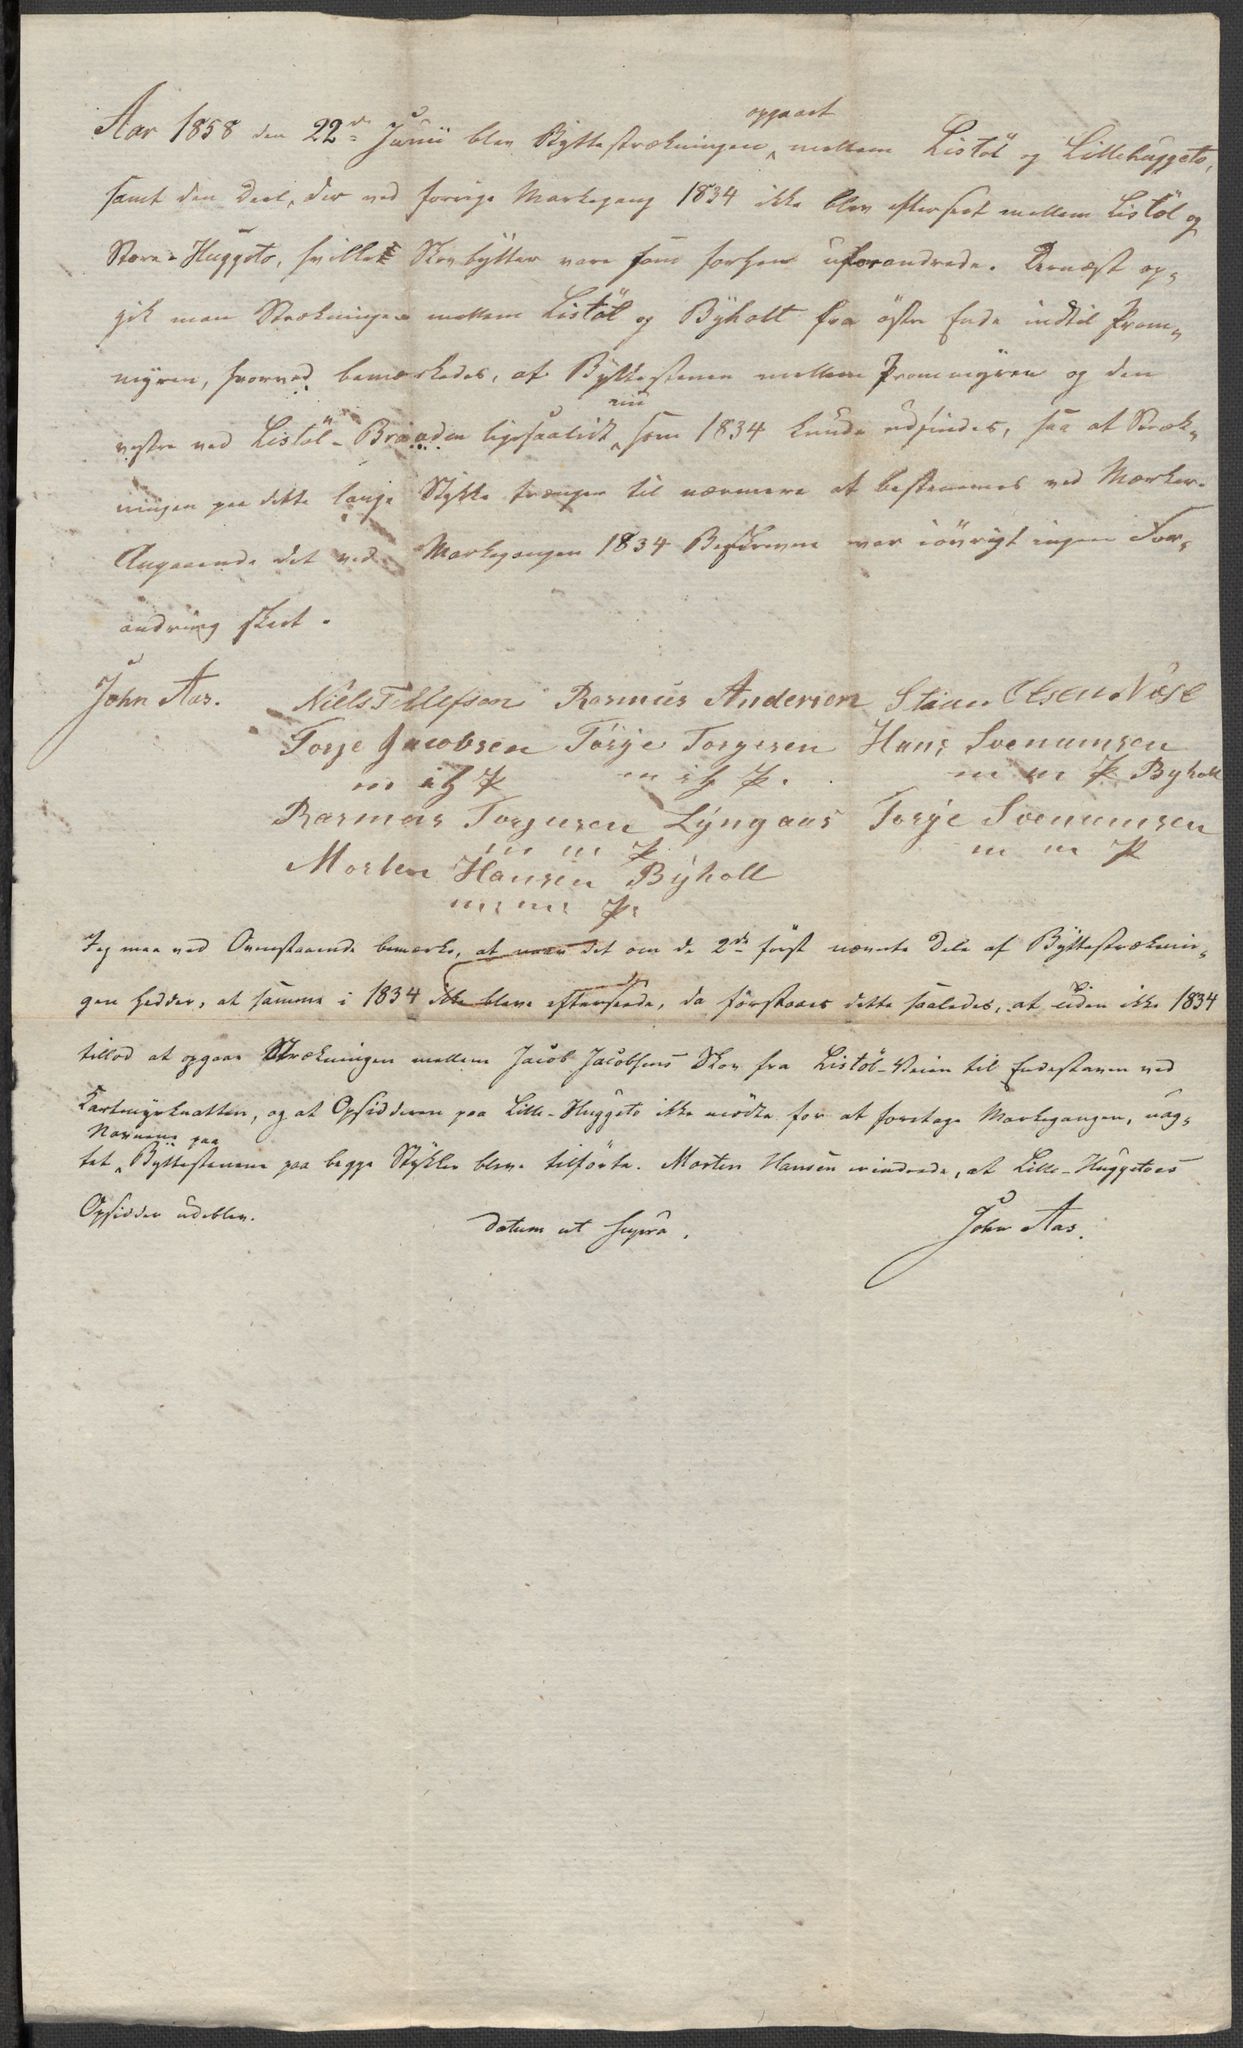 Aar 1858 den 22de Junii blev Byttestrækningen opgaaet mellem Listöl og Lillehuggeto,
samt den Deel, der ved forrige Markegang 1834 ikke blev efterseet mellem Listöl og
Store-Huggeto, hvilke Skovbytter vare som forhen uforandrede. Dernæst op-
gik man Strækningen mellem Listöl og Byholt fra östre Ende indtil Prom-
myren, hvorved bemærkedes, at Byttestenen mellem Prommyren og den
vestre ved Listöl-Braaden ligesaalidt nu som 1834 kunde udfindes, saa at Stræk-
ningen paa dette lange Stykke trænger til nærmere at bestemmes ved Mærker.
Angaaende det ved Markegangen 1834 Beskrevne var iövrigt ingen For-
andring skeet.
John Aas. Niels Tellefsen Rasmus Andersen Stian Olsen Næse
Torje Jacobsen Torje Torgersen Hans Svenumsen
m i h P m i h P. m m P Byholt
Rasmus Torjusen Lyngaas Torje Svenumsen
m m P m m P
Morten Hansen Byholt
m m P
Jeg maa ved Ovenstaaende bemærke, at naar det om de 2de først nævnte Dele af Byttestræknin-
gen hedder, at samme i 1834 ikke bleve efterseede, da forstaaes dette saaledes, at Tiden ikke 1834
tillod at opgaae Strækningen mellem Jacob Jacobsens Skov fra Listöl-Veien til Endestenen ved
Kartmyrknatten, og at Opsidderen paa Lille-Huggeto ikke mödte for at foretage Markegangen, uag-
tet Navnene paa Byttestenene paa begge Stykker bleve tilförte. Morten Hansen erindrede, at Lille-Huggetoes
Opsidder udeblev. datum ut supra. John Aas.